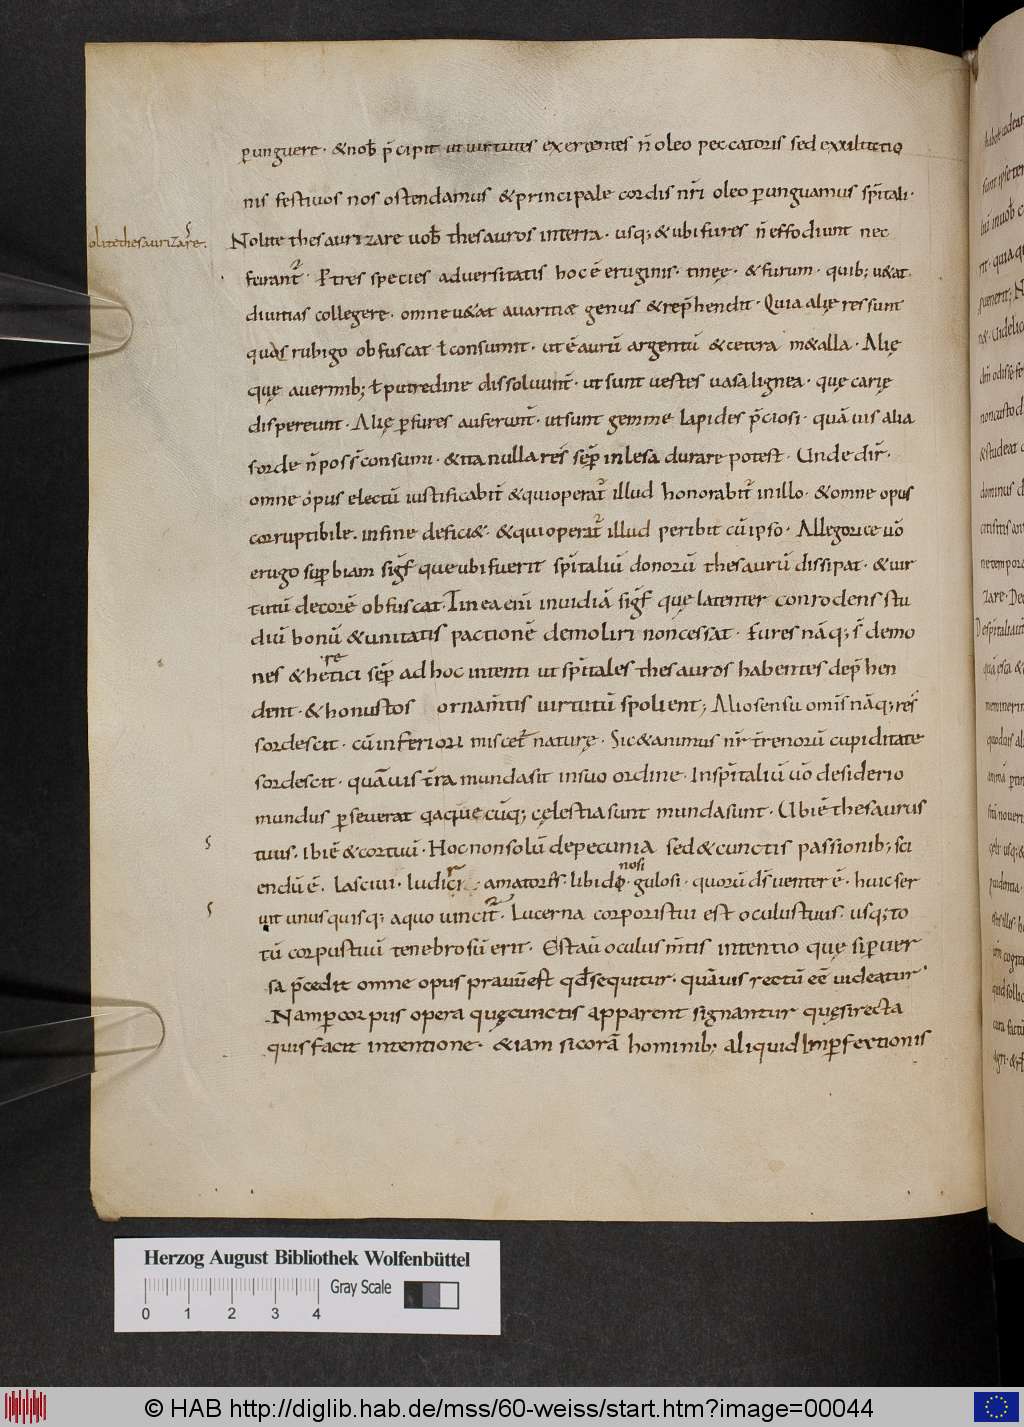 punguere · & nob̄ p̄cipit ut uirtutes exercentes n̄ oleo peccatoris sed exxilitatio
nis festiuos nos ostendamus & principale cordis nr̄i oleo punguamus sp̄itali ·
olite thesaurizare.
Nolite thesaurizare uob̄ thesauros interra · usq; & ubi fures n̄ effodiunt nec
furant̄ · P tres species aduersitatis hoc ē eruginis · tineę · & furum · quib; u&at
diuitias collegere · omne u&at auaritiæ genus & rep̄hendit · Quia alię res sunt
quas rubigo obfuscat ł consumit · ut ē aurū argentū & cetera m&alla · Alię
quę a uermib; ł putredine dissoluunt̄ · ut sunt uestes uasa lignea · quę carię
dispereunt · Alię p fures auferunt̄ · ut sunt gemme lapides p̄ciosi · quā uis alia
sorde n̄ poss̄ consumi · & ita nulla res sēp inlesa durare potest · Unde dir̄ ·
omne opus electū iustificabit̄ & qui operat̄ illud honorabit̄ in illo · & omne opus
corruptibile · in fine defici& · & qui operat̄ illud peribit cū ipso · Allegorice uō
erugo supbiam sigf̄ que ubi fuerit sp̄italiū donorū thesaurū dissipat · & uir
tutū decorē obfuscat · Tinea enī inuidiā sigf̄ quę latenter conrodens stu
diū bonū & unitatis pactionē demoliri non cessat · fures nāq; s̄ demo
nes & heretici sēp ad hoc intenti ut sp̄itales thesauros habentes dep̄hen
dent · & honustos ornam̄tis uirtutū spolient; Alio sensu omīs nāq; res
sordescit · cū inferiori miscet̄ naturę · Sic & animus nr̄ tr̄enorū cupiditate
sordescit · quāuis tr̄ra munda sit in suo ordine · In sp̄italiū uō desiderio
mundus pseuerat q̄acūq; cęlestia sunt munda sunt · Ubi ē thesaurus
tuus · Ibi ē & cor tuū · Hoc non solū de pecunia sed & cunctis passionib; sci
endū ē · Lasciui · ludicri amatores · libidinosi · gulosi · quorū ds̄ uenter ē · huic ser
uit unusquisq; a quo uincit̄ · Lucerna corporis tui est oculus tuus · usq; to
tū corpus tuū tenebrosū erit · Est aū oculus m̄tis intentio quę si puer
sa p̄cedit omne opus prauū est qd̄ sequitur · quāuis rectū eē uideatur ·
Nam p corpus opera quę cunctis apparent signantur quę si recta
quis facit intentione · & iam si corā hominib; aliquid Imperfectionis
Herzog August Bibliothek Wolfenbüttel
Gray Scale
0 1 2 3 4
© HAB http://diglib.hab.de/mss/60-weiss/start.htm?image=00044